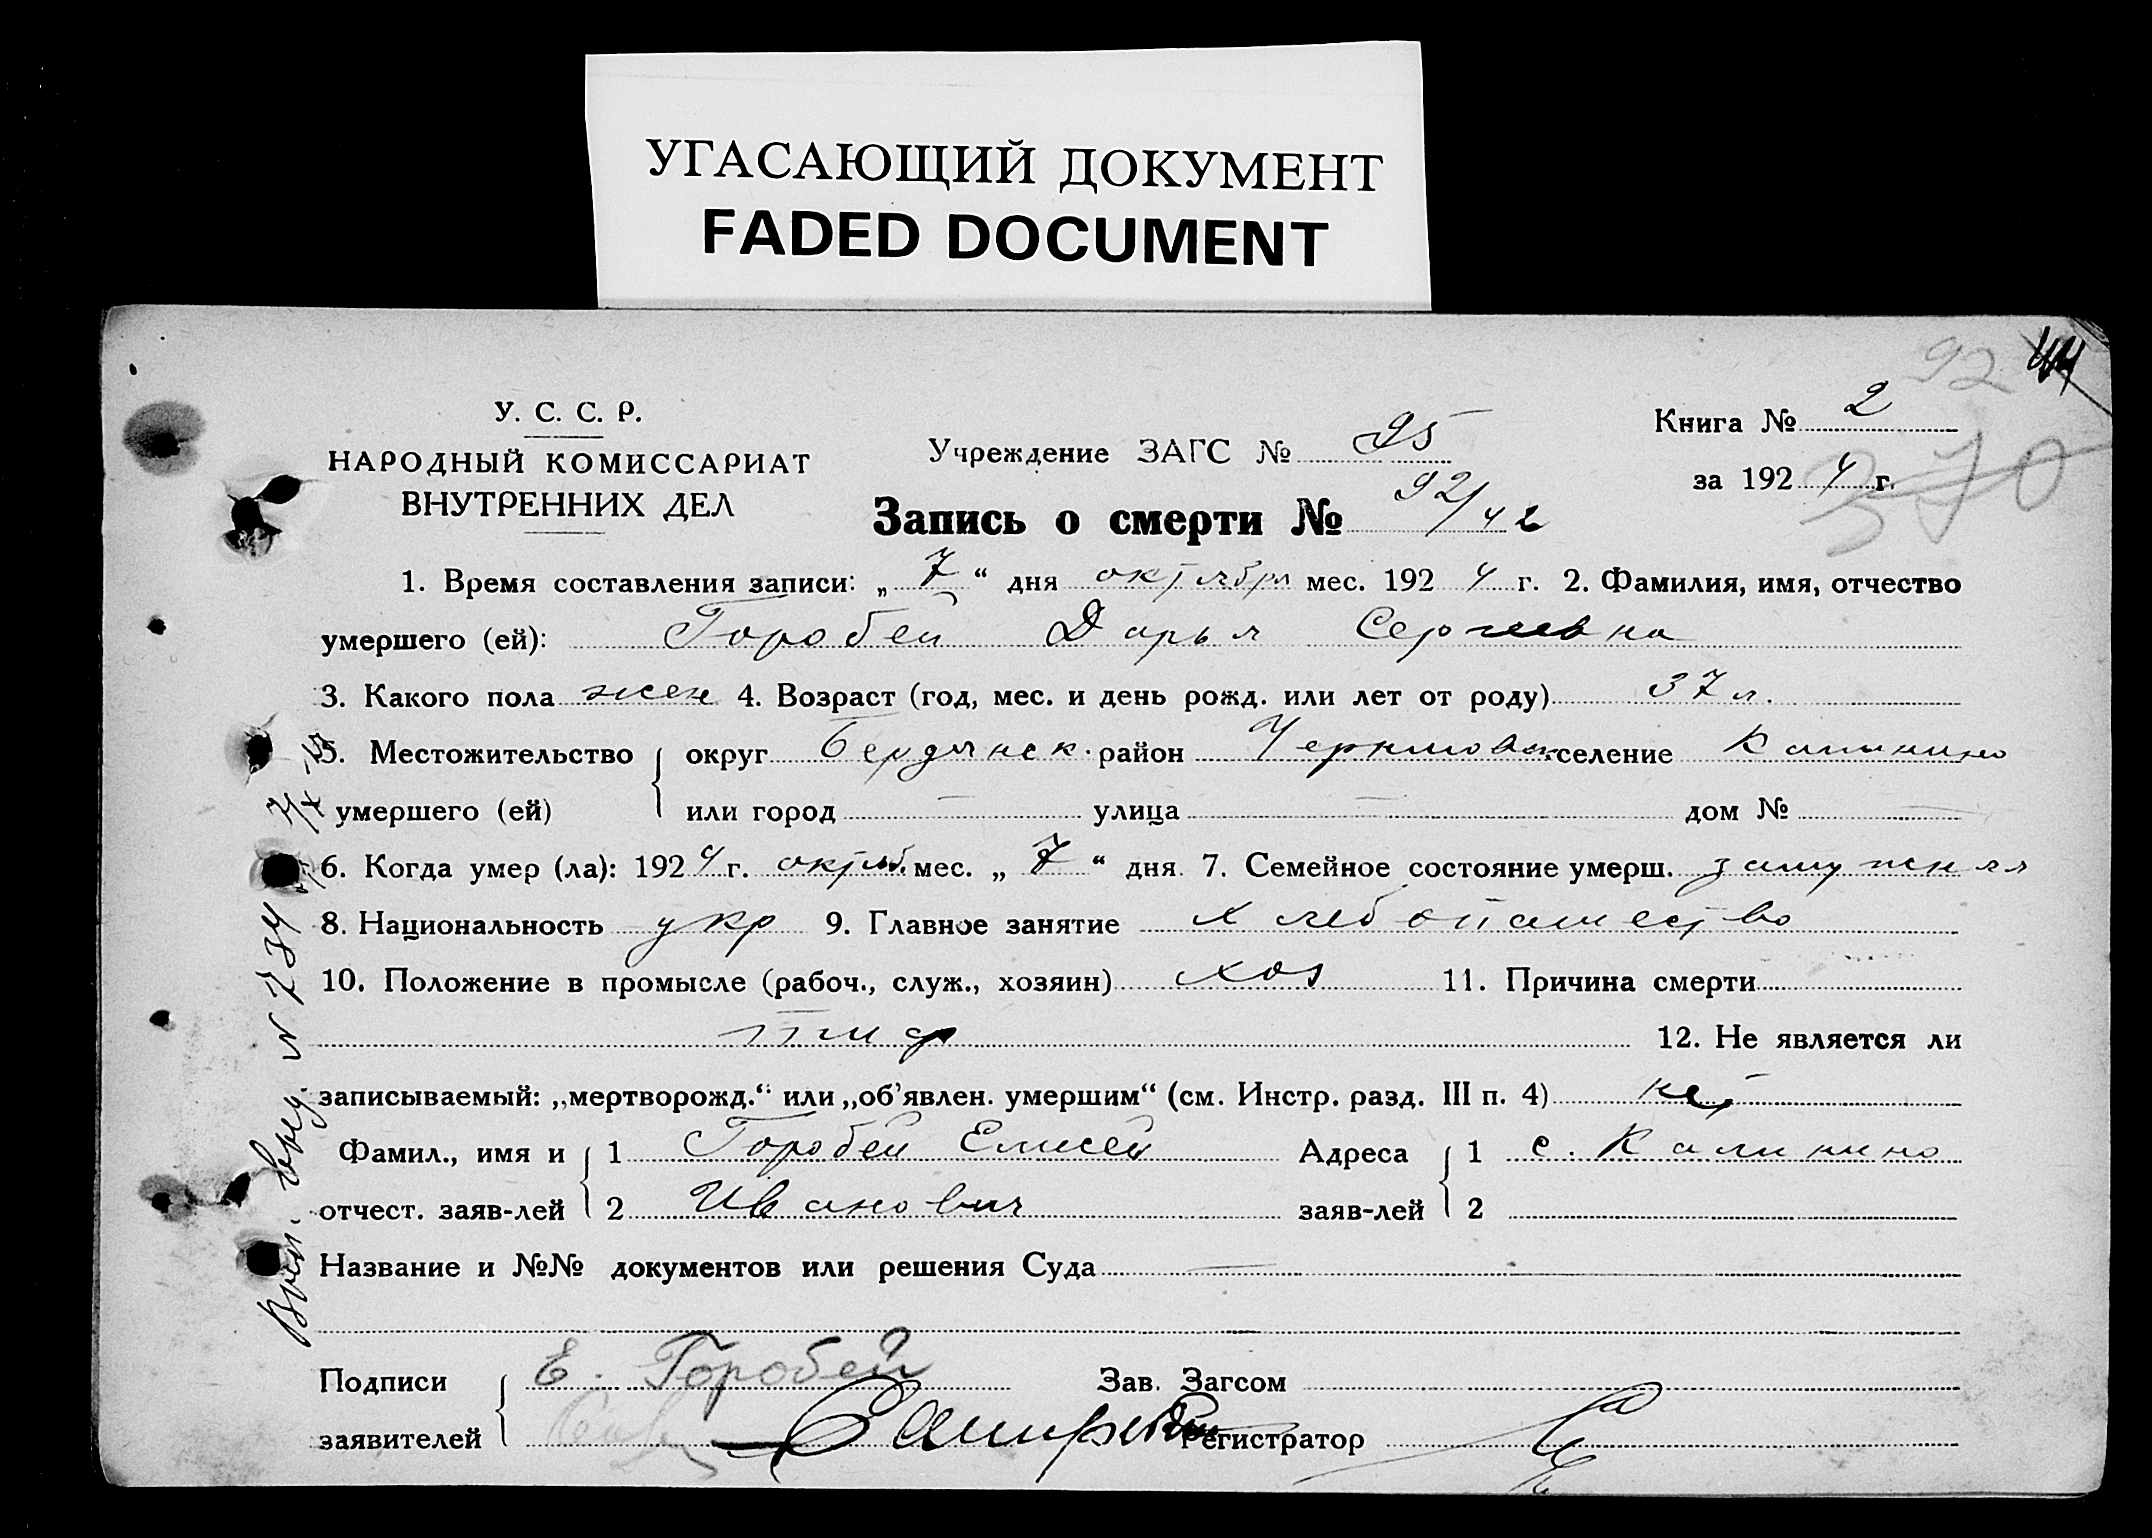 УГАСАЮЩИЙ ДОКУМЕНТ
FADED DOCUMENT
92 44
У. С. С. Р.
НАРОДНЫЙ КОМИССАРИАТ
ВНУТРЕННИХ ДЕЛ
Учреждение ЗАГС № 95
Книга № 2
за 192 4 г.
370
Запись о смерти № 92/42
1. Время составления записи: „ 7 “ дня октября мес. 192 4 г. 2. Фамилия, имя, отчество
умершего (ей): Горобей Дарья Сергеевна
3. Какого пола жен 4. Возраст (год, мес. и день рожд. или лет от роду) 37 л.
5. Местожительство округ Бердянск. район селение Калинино
умершего (ей) или город — улица — дом № —
6. Когда умер (ла): 192 4 г. октяб. мес. „ 7 “ дня. 7. Семейное состояние умерш. замужняя
8. Национальность укр 9. Главное занятие хлебопашество
10. Положение в промысле (рабоч., служ., хозяин) хоз 11. Причина смерти
тиф 12. Не является ли
записываемый: „мертворожд.“ или „об’явлен. умершим“ (см. Инстр. разд. III п. 4) нет
Фамил., имя и 1 Горобей Елисей Адреса 1 с. Калинино
отчест. заяв-лей 2 Иванович заяв-лей 2
Название и №№ документов или решения Суда —
Подписи Е. Горобей Зав. Загсом
заявителей Регистратор